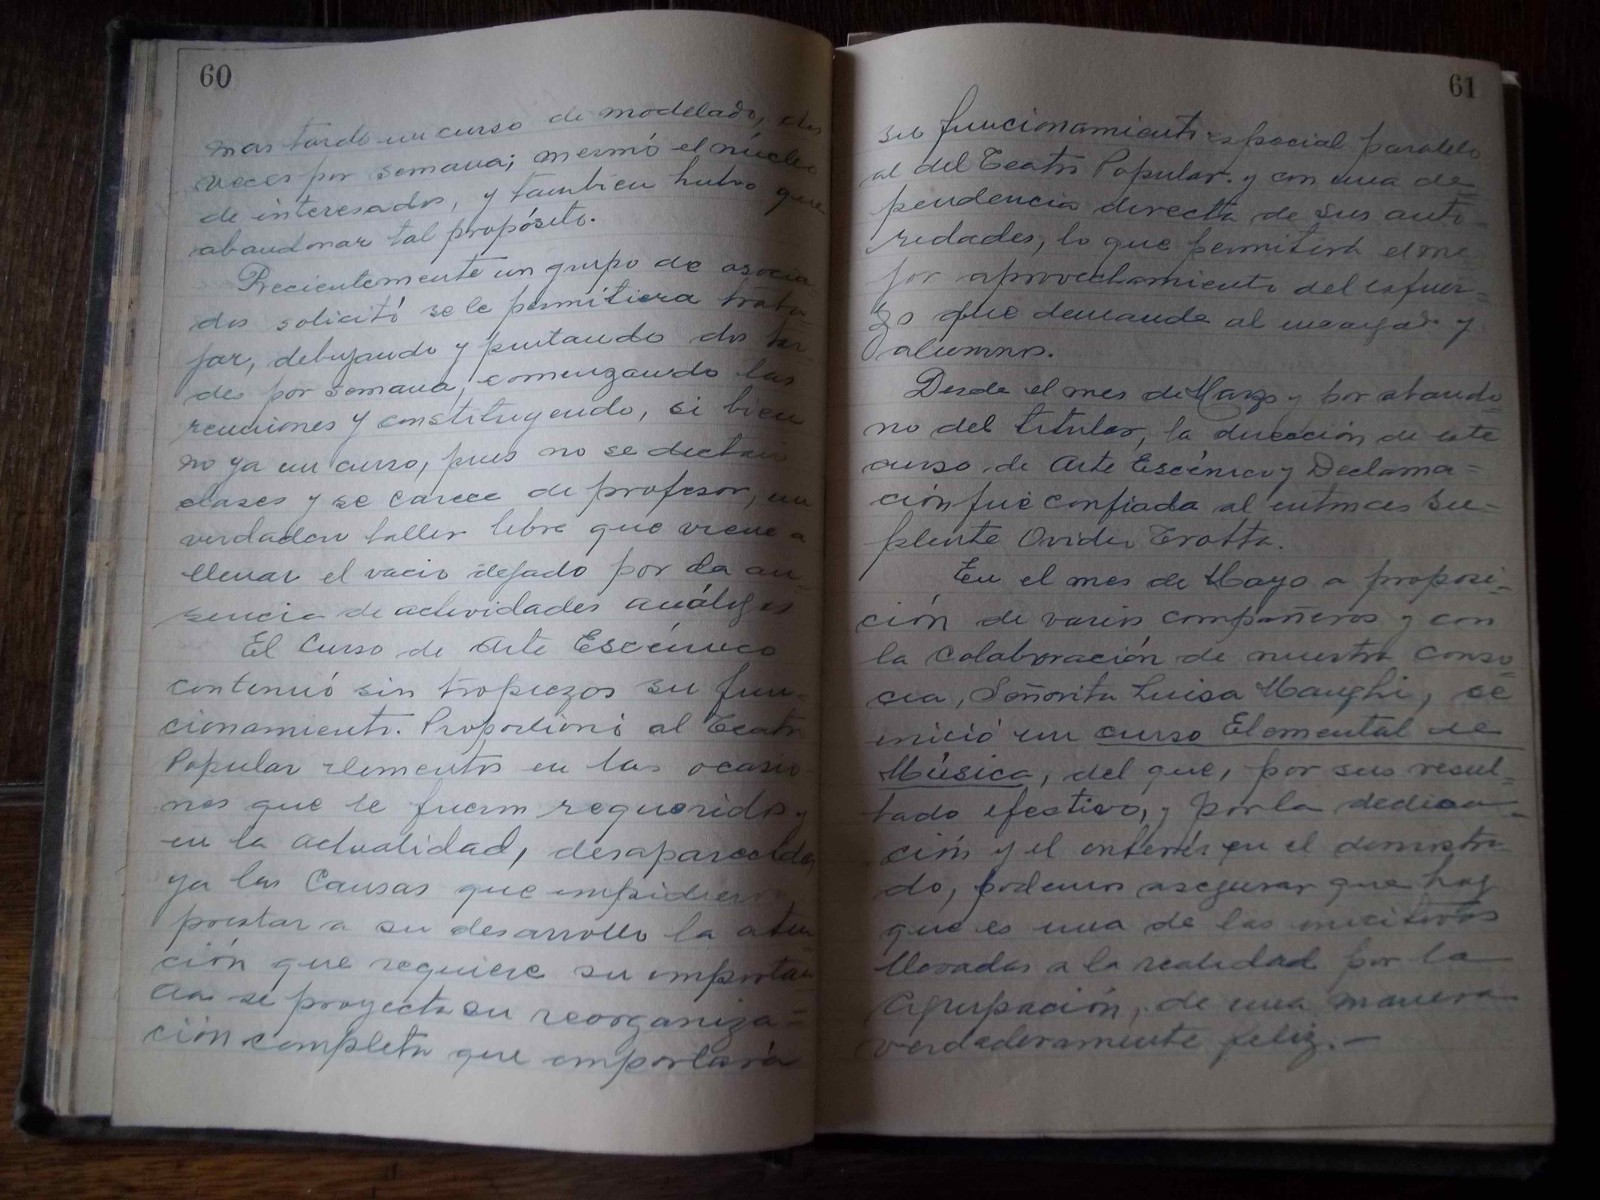 60
mas tarde un curso de modelado, dos
veces por semana; mermó el núcleo
de interesados, y tambien hubo que
abandonar tal propósito.
Recientemente un grupo de asocia
dos solicitó se le permitiera traba-
jar, debujando y pintando dos tar-
des por semana, comenzando las
reuniones y constituyendo, si bien
no ya un curso, pues no se dictan
clases y se carece de profesor, un
verdadero taller libre que viene a
llenar el vacio dejado por la au
sencia de actividades análogas
El Curso de Arte Escénico
continuó sin tropiezos su fun-
cionamiento. Proporcionó al Teatro
Popular elementos en las ocasio-
nes que le fueron requeridos y
en la actualidad, desaparecidas
ya las causas que impidieron
prestar a su desarrollo la aten
ción que requiere su importan
cia se proyecta su reorganiza=
ción completa que importará
61
su funcionamiento especial paralelo
al del Teatro Popular. y con una de=
pendencia directa de sus auto-
ridades, lo que permitirá el me
jor aprovechamiento del esfuer=
zo que demande al encargado y
alumnos.
Desde el mes de Marzo y por abando=
no del titular, la dirección de este
curso de Arte Escénico y Declama=
ción fué confiada al entonces su-
plente Ovidio Trotta.
En el mes de Mayo a proposi-
ción de varios compañeros y con
la colaboración de nuestra conso=
cia, Señorita Luisa Maughi, se
inició un curso Elemental de
Música, del que, por sus resul=
tado efectivo, y por la dedica-
ción y el interés en el demostra-
do, podemos asegurar que hoy
que es una de las iniciativas
llevadas a la realidad por la
Agrupación, de una manera
verdaderamente feliz.-